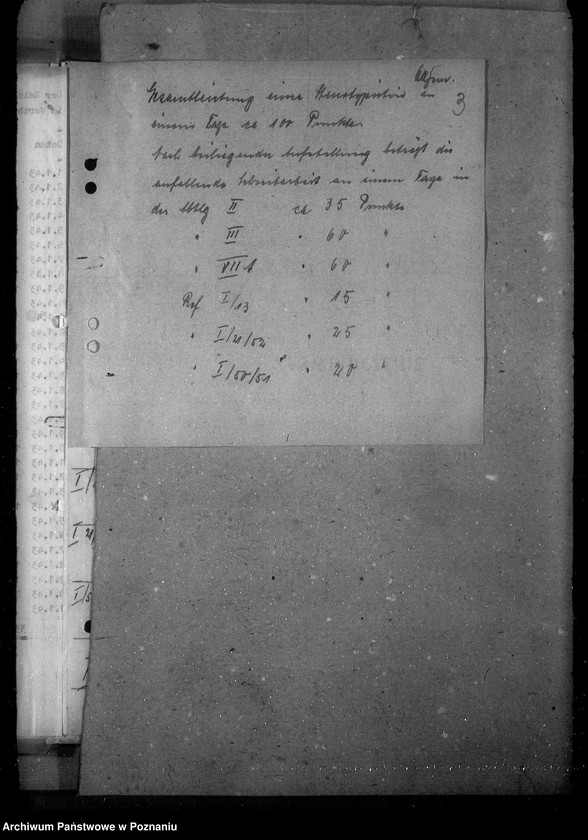 Allgem.
3
Gesamtleistung einer Stenotypistin an
einem Tage ca 100 Punkte.
Nach beiliegender Aufstellung beträgt die
anfallende Schreibarbeit an einem Tage in
der Abtlg II ca 35 Punkte
" III " 60 "
" VII A " 60 "
Ref I/13 " 15 "
" I/21/52 " 25 "
" I/50/51 " 20 "
I/
I/21
I/5
Archiwum Państwowe w Poznaniu